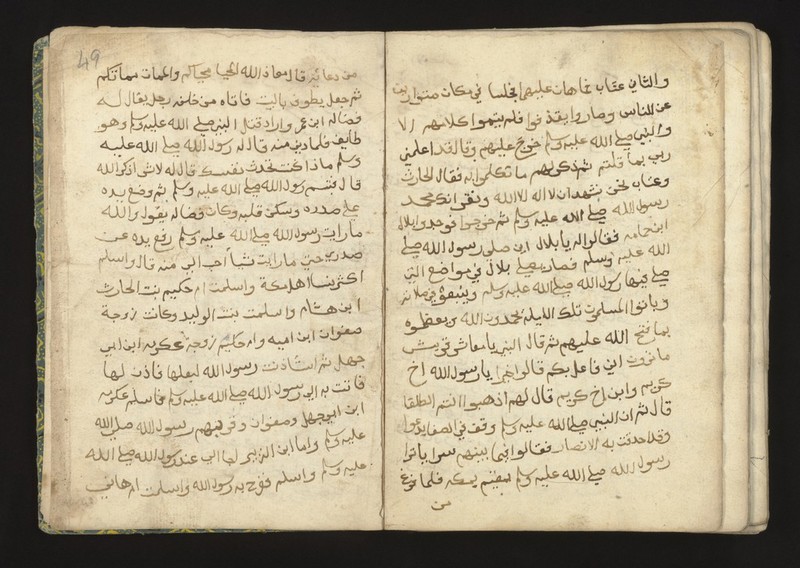 والثاني عتاب بن
عن الناس وصاروا فلم يتموا كلامهم الا
والنبي صلى الله عليه وسلم خرج عليهم وقال قد اعلمني
ربي بما قلتم ثم ذكر لهم ما تكلموا به فقال الحارث
وعتاب نحن نشهد ان لا اله الا الله ونقر انك محمد
رسول الله صلى الله عليه وسلم ثم خرجوا فوجدوا بلال
ابن حمامه فقالوا له يا بلال اين صلى رسول الله صلى
الله عليه وسلم فصار يصلي بلال في مواضع التي
صلى فيها رسول الله صلى الله عليه وسلم
وباتوا المسلمون تلك الليلة يحمدون الله
بما فتح الله عليهم ثم قال النبي يا معاشر قريش
ما ترون اني فاعل بكم قالوا خيرا يا رسول الله اخ
كريم وابن اخ كريم قال لهم اذهبوا انتم الطلقا
قال ثم ان النبي صلى الله عليه وسلم وقف في الصفا يدعوا
وقد احدقت به الانصار فقالوا فيما بينهم
رسول الله صلى الله عليه وسلم يقيم بمكه فلما فرغ
من
49
من دعائه قال معاذ الله المحيا محياكم والممات مماتكم
ثم جعل يطوف بالبيت فاتاه من خلفه رجل يقال له
فضاله ابن عمر واراد قتل النبي صلى الله عليه وسلم وهو
طايف فلما دنى منه قال له رسول الله صلى الله عليه
وسلم ماذا كنت تحدث نفسك قال له لا شي اذكر الله
قال فتبسم رسول الله صلى الله عليه وسلم ثم وضع يده
على صدره وسكن قلبه وكان فضاله يقول والله
ما رايت رسول الله صلى الله عليه وسلم رفع يده عن
صدري حتى ما رايت شيأ احب الي منه قال واسلم
اكثر نسا اهل مكة واسلمت ام حكيم بنت الحارث
ابن هشام واسلمت بنت الوليد وكانت زوجة
صفوان ابن اميه وام حكيم زوجة عكرمه ابن ابي
جهل ثم استأذنت رسول الله لبعلها فاذن لها
فاتت به الى رسول الله صلى الله عليه وسلم فاسلم عكرمه
ابن ابي جهل وصفوان وفرح بهم رسول الله صلى الله
عليه وسلم واما ابن الزبير عند رسول الله صلى الله
عليه وسلم واسلم ففرح به رسول الله واسلمت ام هاني